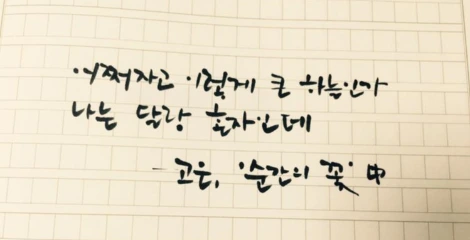 어쩌자고 이렇게 큰 하늘인가
나는 달랑 혼자인데
- 고은, '순간의 꽃' 中